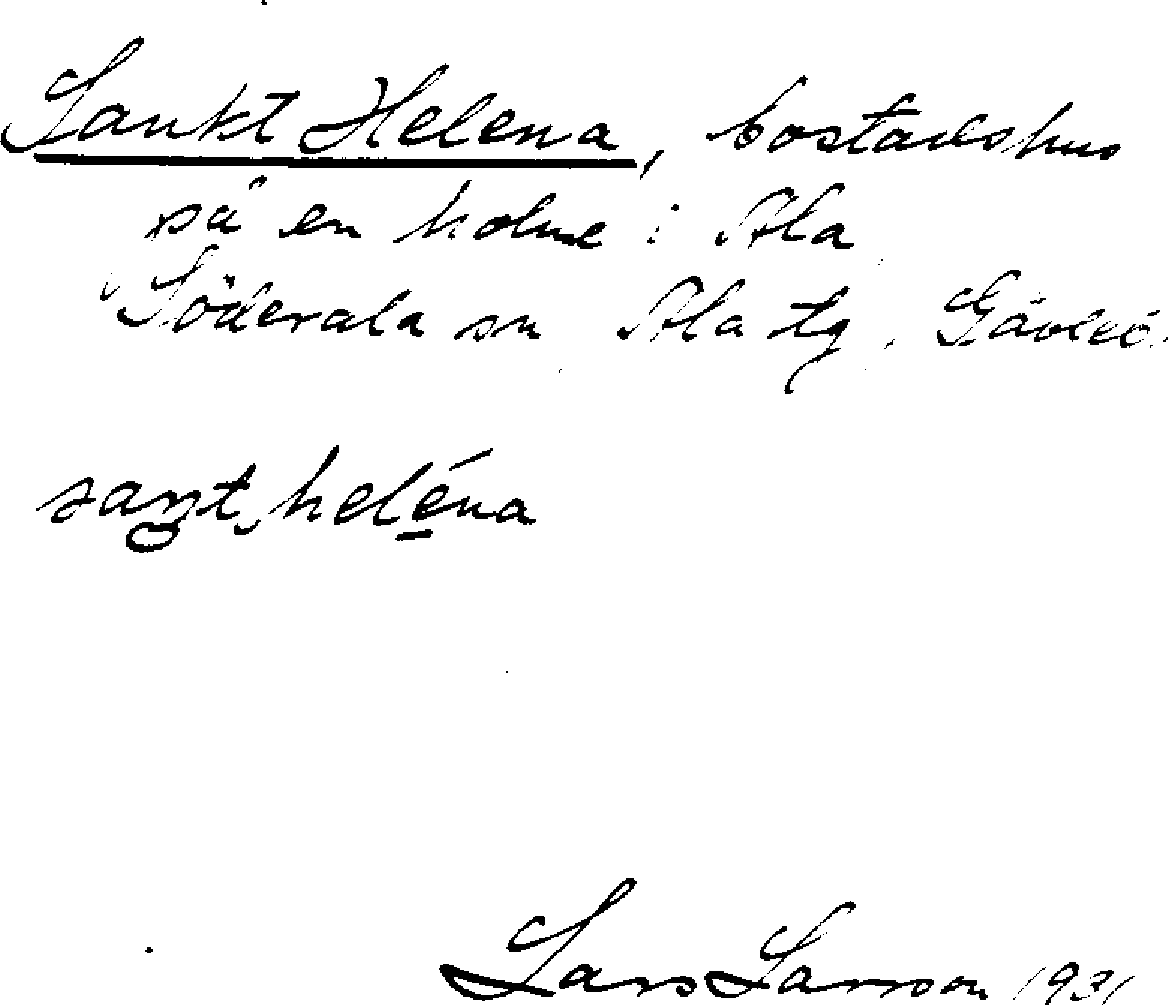 Sankt Helena, bostadshus
på en holme i Ala
Söderala sn Ala tg. Gävleb.
saŋt heléna
Lars Larsson 1931